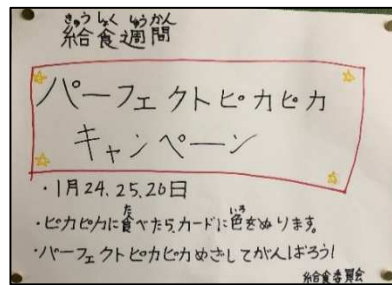 きゅうしょくしゅうかん
給食週間
パーフェクトピカピカ
キャンペーン
・1月24.25.26日
・ピカピカに食べたら、カードに色をぬります。
・パーフェクトピカピカめざしてがんばろう!
給食委員会